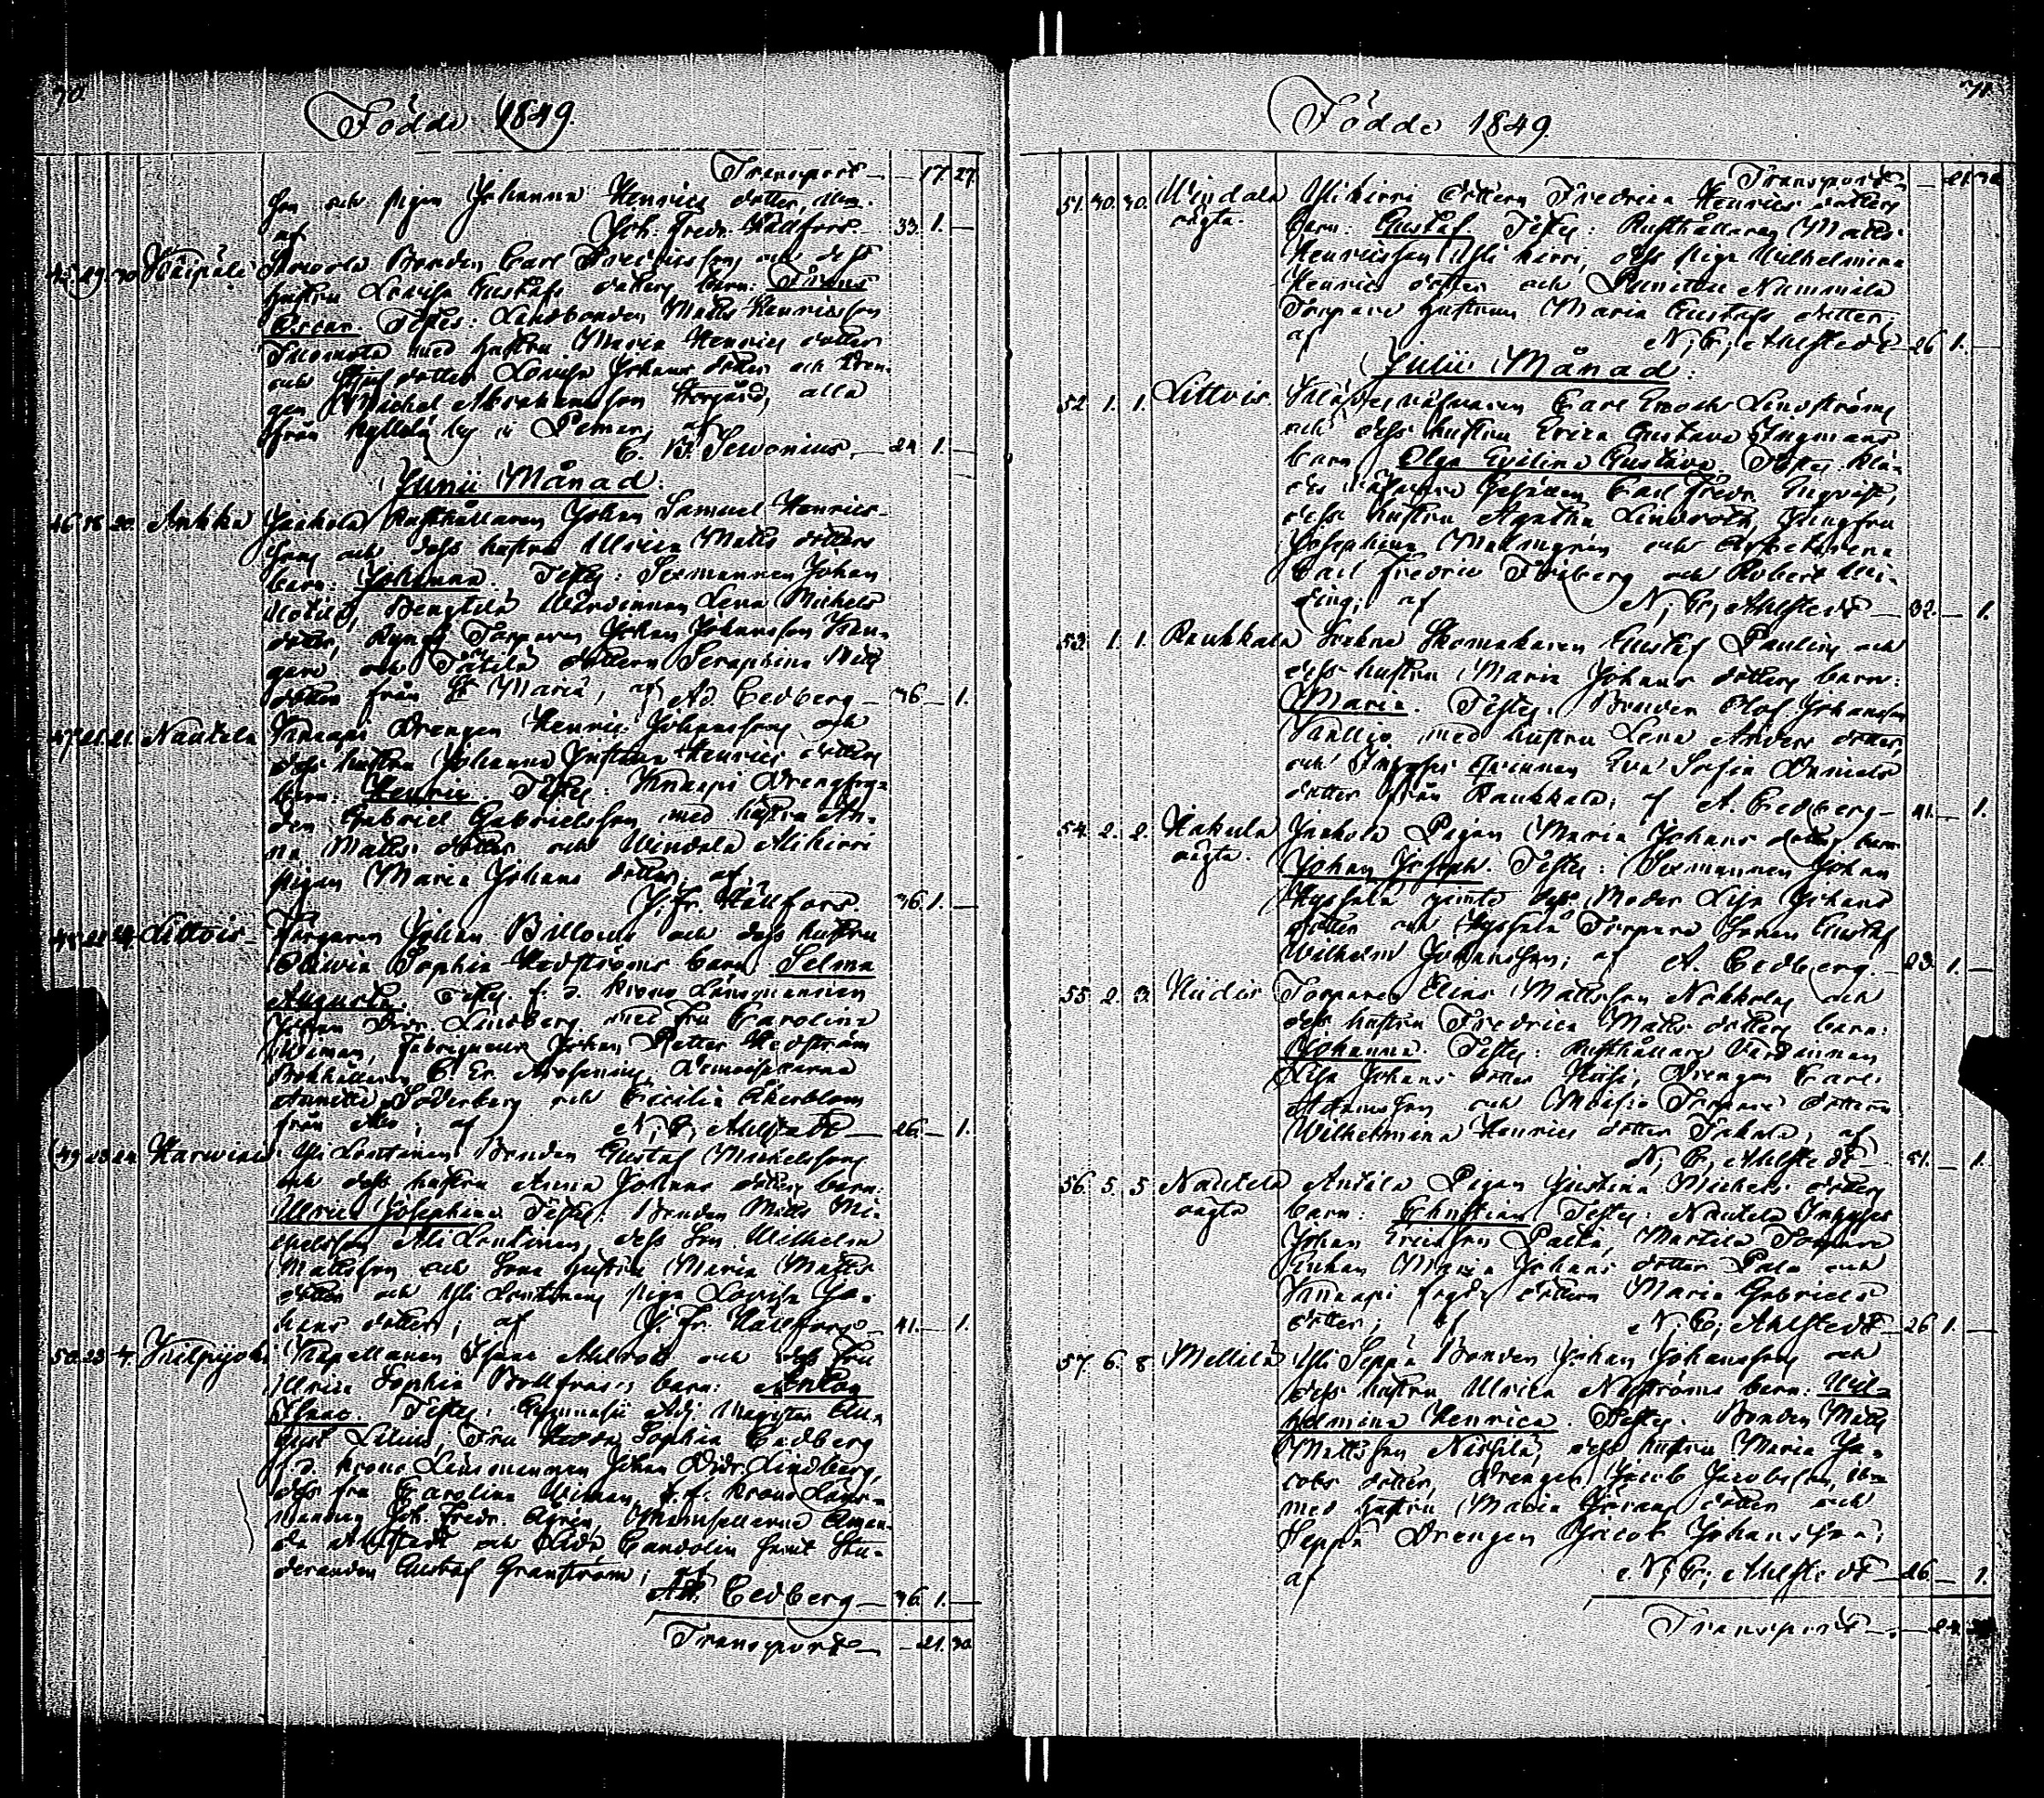 70
Födde 1849.
Transport — — 17 27
son och pigan Johanna Henrics dotter, ibm.
af Joh. Fredr. Hällfors — 33. 1. —
45. 29. 30 Bonden Carl Fredricsson och dess
hustru Lovisa Gustafs dotters barn: Frans
Oscar. Testes: Landbonden Matts Henricsson
med hustru Maria Henrics dotter
och dotter Lovisa Johans dotter och dren-
gen Michel Abrahamsson alla
från by i Pemar, af
C. B. Sevonius — 24 1. —
Junii Månad.
46. 18. 20. Ankka Jaakola Rusthållaren Johan Samuel Henrics-
sons och dess hustru Ulrica Matts dotters
barn: Johanna. Testes: Sexmannen Johan
Bengtilä Wärdinnan Lena Michels
dotter, Torparen Johan Johansson
och dottern Seraphina Matts
dotter från St Mariä, af Ad. Cedberg — 36 — 1.
47. 21. 21. Nautela Knaapi Drengen Henric Johanssons och
dess hustru Johanna Justina Henrics dotters
barn: Henric. Testes: Knaapi Drengfog-
den Gabriel Gabrielsson med hustru An-
na Matts dotter och Windala Alikirri
pigan Maria Johans dotter, af
J. Fr. Hällfors 36. 1. —
48. 21 24. Littois Färgaren Johan Billows och dess hustru
Sophia Hedströms barn: Selma
Augusta. Testes: f. d. Krono Länsmannen
Johan Didr. Lindberg med fru Carolina
Wiman, Fabriqueur Johan Petter Hedström
Bokhållaren C. Er. Demoisellerna
Annette Söderberg och Cecilia Åkerblom
från Åbo, af N. C. Ahlstedt — 26. — 1.
49 23 24. Karwiais Yli Lentinen Bonden Gustaf Michelssons
och dess hustru Anna Johans dotters barn:
Ulrica Josephina. Testes: Bonden Matts Mi-
chelsson Ali Lentinen, dess Son Wilhelm
Mattsson och Sons hustru Maria Matts
dotter och Yli Lentinens piga Lovisa Jo-
hans dotter; af J. Fr. Hällfors — 41. — 1.
50. 23 4. Kuilpyöli Kapellanen Isaac Ahlroth och dess fru
Ulrica Sophia barn: Anton
Isaac. Testes: Gymnasii Adj. Magister Au-
gust Lilius, Fru Hedda Sophia Cedberg
f. d. Krono Länsmannen Johan Didr. Lindberg,
dess fru Carolina Wiman, t. f. Krono Läns-
mannen Joh. Fredr. Agrén, Mamsellerna Aman-
da Ahlstedt och Lida Candolin samt Stu-
deranden Gustaf Granström; af
Ad. Cedberg — 36. 1. —
Transport — — 21. 30.
71.
Födde 1849.
Transport — — 21. 30
51. 30. 30. Windala Alikirri dottern Fredrica Henrics dotters
oägta. barn: Gustaf. Testes: Rusthållaren Matts
Henricsson Alikirri, dess piga Wilhelmina
Henrics dotter och Nummila
Torpare hustrun Maria Gustafs dotter,
af N. C. Ahlstedt — 26 1. —
Julii Månad.
52. 1. 1. Littois. Carl Enoch Lindströms
och dess hustru Erica Gustava Ingmans
barn: Olga Evelina Gustava. Testes: Klä-
Gesällen Carl Fredr. Enqvist,
dess hustru Agatha Lindroth, Jungfru
Josephina Malmgrén och Arbetarena
Carl Fredric Friberg och Robert
af N. C. Ahlstedt — 32. — 1.
53. 1. 1. Raukkala Sockne Skomakaren Gustaf Paulins och
dess hustru Maria Johans dotters barn:
Maria. Testes: Bonden Olof Johansson
Kallio med hustru Lena Anders dotter,
och Inhyses qvinnan Eva Sofia Daniels
dotter från Raukkala, af A. Cedberg — 41. — 1.
54. 2. 2. Hakula Jaakola Pigan Maria Johans dotters barn
oägta. Johan Joseph. Testes: Sexmannen Johan
Hyssälä jemte dess Moder Lisa Johans
dotter och Hyssälä Torpare Sonen Gustaf
Wilhelm Johansson; af A. Cedberg. — 23. 1. —
55. 2. 3. Hiidis Torparen Elias Mattsson Nokkolas och
dess hustru Fredrica Matts dotters barn:
Johanna. Testes: Rusthållare Värdinnan
Lisa Johans dotter Drengen Carl
Adamsson och Torpare dottern
Wilhelmina Henrics dotter af
N. C. Ahlstedt — 41. — 1.
56. 5. 5 Nautela Antila Pigan Justina Michels dotters
oägta barn: Christian. Testes: Nautela Inhyses
Johan Ericsson Palta, Martela Torpare
Enkan Maria Johans dotter Palo och
Knaapi fogde dottern Maria Gabriels
dotter, af N. C. Ahlstedt — 26 1. —
57. 6. 8 Mellilä Yli Seppä Bonden Johan Johanssons och
dess hustru Ulrica Nyströms barn: Wil-
helmina Henrica. Testes: Bonden Matts
Mattsson Nissilä, dess hustru Maria Ja-
cobs dotter, Drengen Jacob Jacobsson, ibm
med hustru Maria Johans dotter och
Seppä Drengen Jacob Johansson;
af N. C. Ahlstedt — 26 — 1.
Transport — —